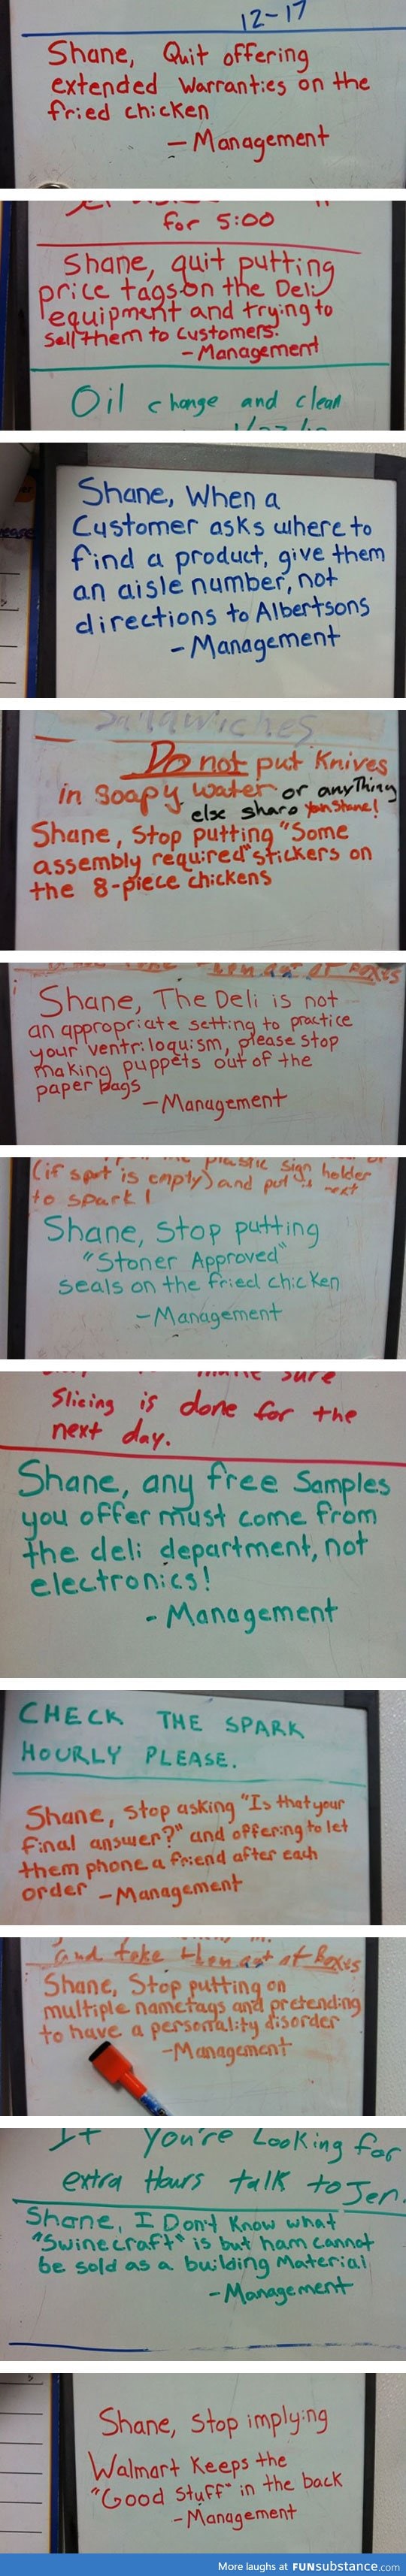 12-17
Shane, Quit offering
extended Warranties on the
fried chicken
- Management
for 5:00
Shane, quit putting
price tags on the Deli
equipment and trying to
sell them to customers.
- Management
Oil change and clean
Shane, When a
Customer asks where to
find a product, give them
an aisle number, not
directions to Albertsons
- Management
Sandwiches
Do not put Knives
in soapy water or anything
else sharp Yes Shane!
Shane, Stop putting "Some
assembly required" stickers on
the 8-piece chickens
Shane, The Deli is not
an appropriate setting to practice
your ventriloquism, please stop
making puppets out of the
paper bags
- Management
plastic sign holder
(if spot is empty) and put next
to spark!
Shane, Stop putting
"Stoner Approved"
seals on the fried chicken
- Management
make sure
Slicing is done for the
next day.
Shane, any free Samples
you offer must come from
the deli department, not
electronics!
- Management
CHECK THE SPARK
HOURLY PLEASE.
Shane, Stop asking "Is that your
final answer?" and offering to let
them phone a friend after each
order - Management
and take them out of Boxes
Shane, Stop putting on
multiple nametags and pretending
to have a personality disorder
- Management
If You're Looking for
extra Hours talk to Jen.
Shane, I Don't Know what
"Swinecraft" is but ham cannot
be sold as a building Material
- Management
Shane, Stop implying
Walmart Keeps the
"Good Stuff" in the back
- Management
More laughs at FUNsubstance.com